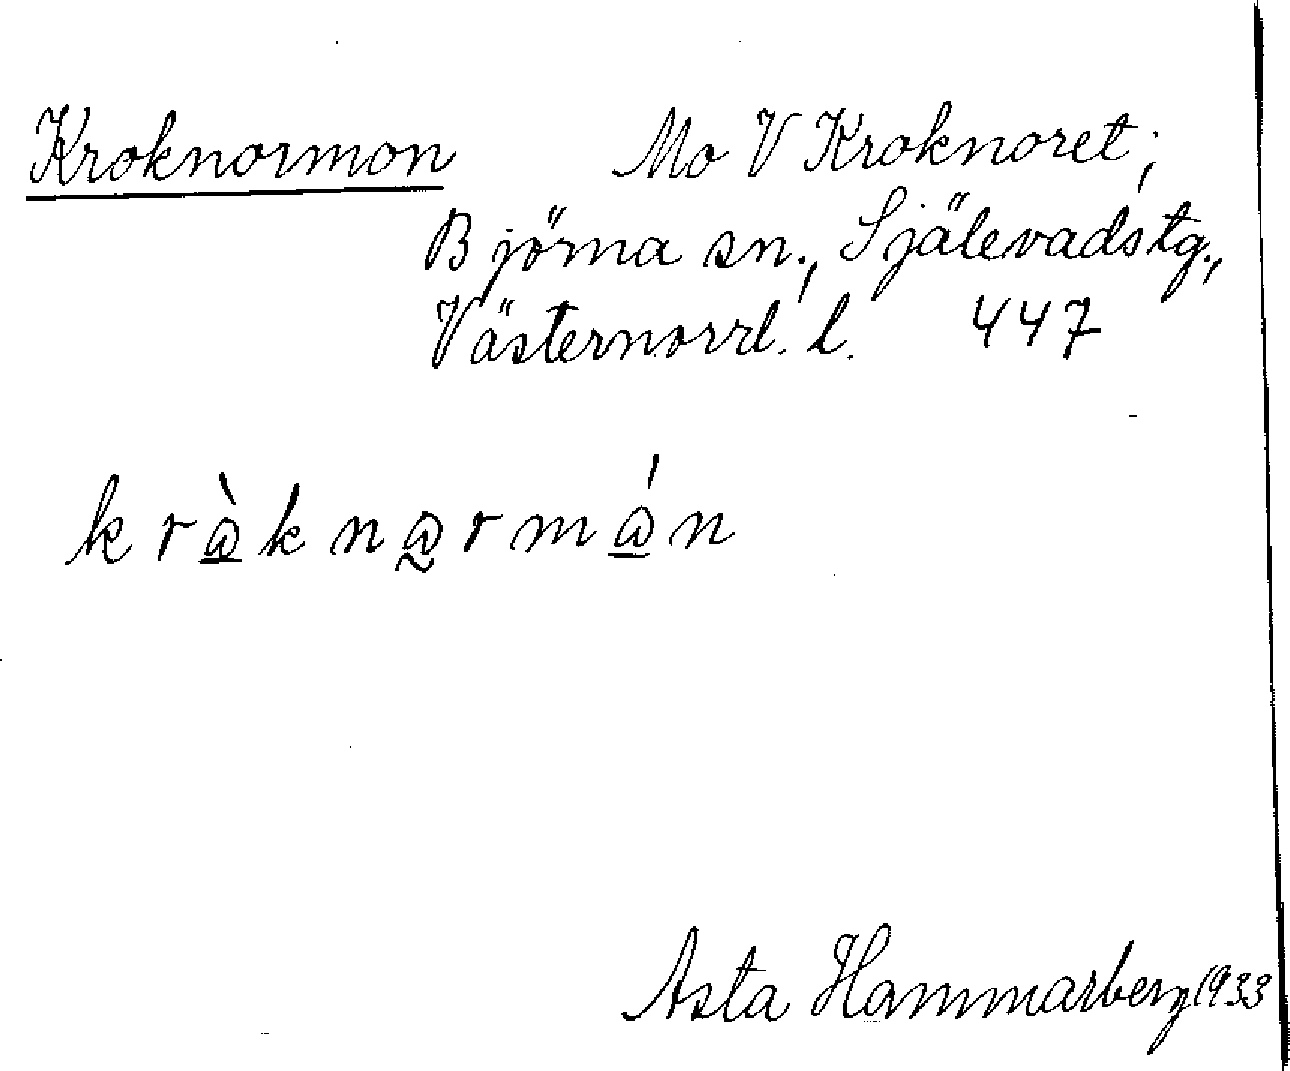 Kroknormon Mo V Kroknoret;
Björna sn., Själevads tg.,
Västernorrl. l. 447
kràknarmán
Asta Hammarberg 1933